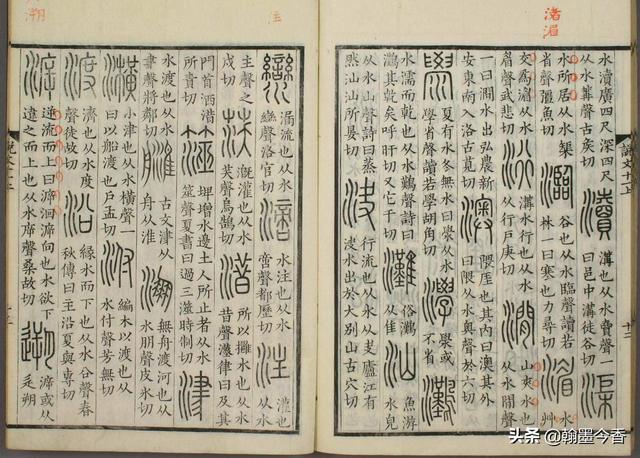 渚湄
說文十一上
水瀆廣四尺深四尺
从水冓聲古矦切
瀆
溝也从水賣聲一
曰邑中溝徒谷切
渠
水所居从水榘
省聲彊魚切
瀶
谷也从水臨聲讀若
林一曰寒也力尋切
湄
水
艸
交爲湄从水
眉聲武悲切
洐
溝水行也从水
从行戶庚切
澗
山夾水也
从水閒聲
一曰澗水出弘農新
安東南入洛古莧切
澳
隈厓也其內曰澳其外
曰隈从水奧聲於六切
澩
夏有水冬無水曰澩从水
學省聲讀若學胡角切
澩或
不省
水濡而乾也从水鸛聲詩曰
灘其乾矣呼旰切又他干切
灘
俗灘
从隹
汕
魚游
水皃
从水山聲詩曰蒸
然汕汕所晏切
決
行流也从水从夬廬江有
決水出於大別山古穴切
注
灓
漏流也从水
䜌聲洛官切
滴
水注也从水
啻聲都歷切
注
灌也
从水
主聲之
戍切
溉灌也从水
芺聲烏鵠切
所以攤水也从水
昔聲漢律曰及其
門首洒
所責切
澨
埤增水邊土人所止者从水
筮聲夏書曰過三澨時制切
津
水渡也从水
聲將鄰切
古文津从
舟从淮
淜
無舟渡河也从
水朋聲皮冰切
橫
小津也从水橫聲一
曰以船渡也戶孟切
泭
編木以渡也从
水付聲芳無切
渡
濟也从水度
聲徒故切
沿
緣水而下也从水㕣聲春
秋傳曰王沿夏與專切
㴑
逆流而上曰㴑洄㴑向也水欲下
違之而上也从水聲桑故切
遡
㴑或从
朔
頭条 @翰墨今香